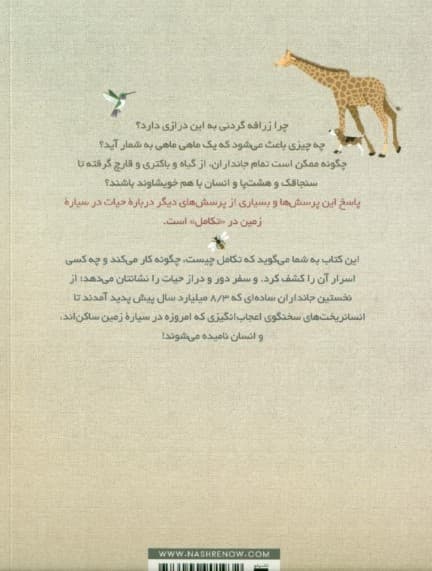 چرا زرافه گردنی به این درازی دارد؟
چه چیزی باعث می‌شود که یک ماهی ماهی به شمار آید؟
چگونه ممکن است تمام جانداران، از گیاه و باکتری و قارچ گرفته تا
سنجاقک و هشت‌پا و انسان با هم خویشاوند باشند؟
پاسخ این پرسش‌ها و بسیاری از پرسش‌های دیگر دربارهٔ حیات در سیارهٔ
زمین در «تکامل» است.
این کتاب به شما می‌گوید که تکامل چیست، چگونه کار می‌کند و چه کسی
اسرار آن را کشف کرد. و سفر دور و دراز حیات را نشانتان می‌دهد؛ از
نخستین جانداران ساده‌ای که ۸/۳ میلیارد سال پیش پدید آمدند تا
انسانریخت‌های سخنگوی اعجاب‌انگیزی که امروزه در سیارهٔ زمین ساکن‌اند،
و انسان نامیده می‌شوند!
WWW.NASHRENOW.COM